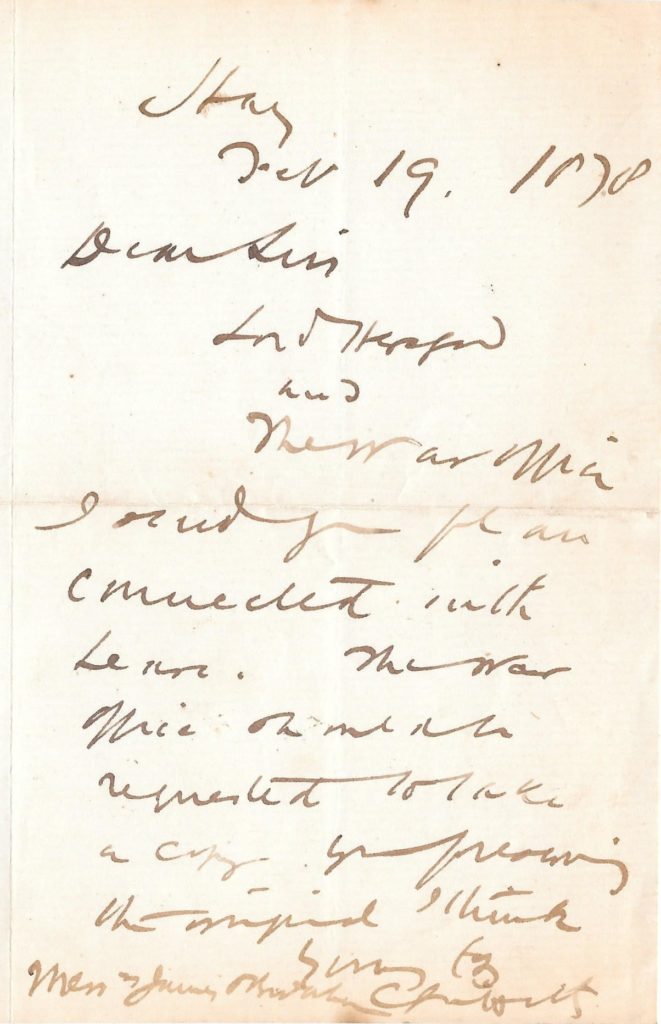 Hay
Feb 19. 1878
Dear Sirs
Lord Hereford
and
The War Office
I send you plan
connected with
Lease. The War
Office should be
requested to take
a copy you preserving
the original I think
Yours
Messrs James &